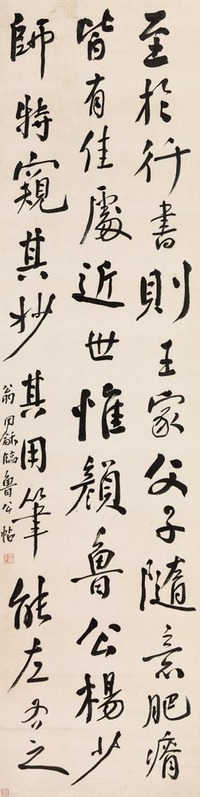 至於行書則王家父子隨意肥瘠
皆有佳處近世惟顏魯公楊少
師特窺其妙其用筆能左右之
翁同龢臨魯公帖